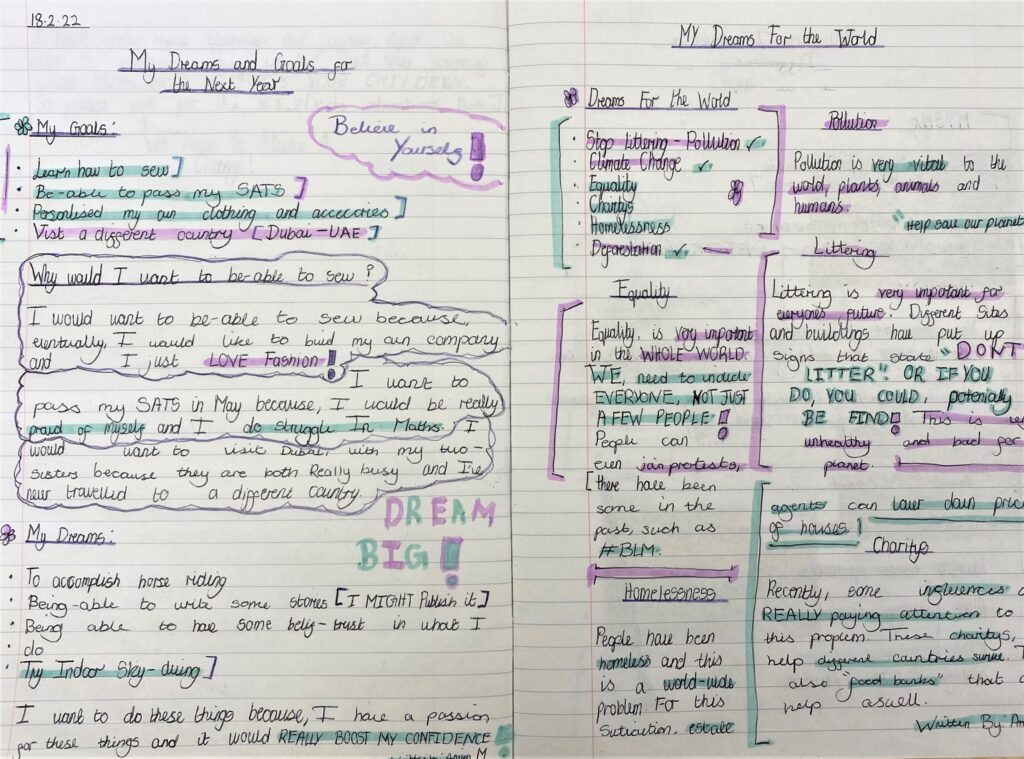 18.2.22
My Dreams and Goals for
the Next Year
My Goals:
Believe in
Yourself!
· Learn how to sew]
· Be-able to pass my SATS]
· Personlised my own clothing and acceccories]
· Vist a different country [Dubai-UAE]
Why would I want to be-able to sew?
I would want to be-able to sew because,
eventually, I would like to buid my own company
and I just LOVE Fashion!
I want to
pass my SATS in May because, I would be really
proud of myself and I do struggle In Maths. I
would want to visit Dubai, with my two-
sisters because they are both Really busy and I've
never travelled to a different country.
DREAM
BIG!
My Dreams:
· To accomplish horse riding
· Being-able to write some stories [I MIGHT Publish it]
· Being able to have some belif-trust in what I
· do
· Try Indoor Sky-diving]
I want to do these things because, I have a passion
for these things and it would REALLY BOOST MY CONFIDENCE!
M
MY Dreams For the World
Dreams For the World
· Stop littering - Pollution ✓
· Climate Change ✓
· Equality
· Charitys
· Homelessness
· Deforestation ✓ —
Equality
Equality, is very important
in the WHOLE WORLD.
WE, need to include
EVERYONE, NOT JUST
A FEW PEOPLE!
People can
even join protests,
[there have been
some in the
past, such as
#BLM.
Homelessness
People have been
homeless and this
is a world-wide
problem. For this
Suticution, estate
Pollution
Pollution is very vital to the
world, plants, animals and
humans.
"Help save our planet
Littering
Littering is very important for
everyones future. Different Sites
and buildings have put up
signs that state "DONT
LITTER". OR IF YOU
DO, YOU COULD, potenially
BE FIND! This is
unhealthy and bad for
planet.
agents can lower down
of houses!
Charitys
Recently, some
REALLY paying attention to
this problem. These charitys,
help different countries survive.
also "food banks" that
help aswell.
Written By: